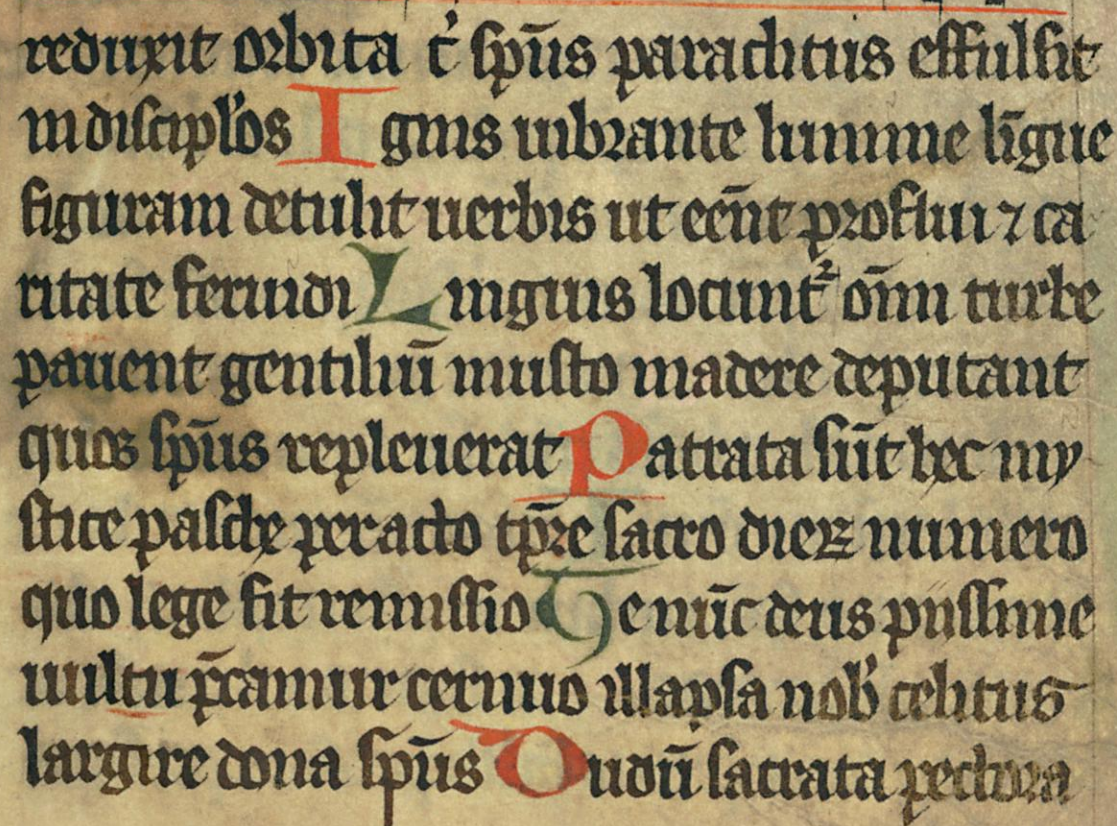 reduxit orbita c̓ sp̄us paraclitus effulsit
in discipl̓os Ignis uibrante lumine li̅gue
figuram detulit uerbis ut ee̅nt proflui ⁊ ca
ritate feruidi Linguis locunt᷑ om̅i turbe
pauent gentiliu̅ musto madere deputant
quos sp̄us repleuerat Patrata su̅t hec my
stice pasche peracto tp̅re sacro dieꝝ numero
quo lege fit remissio Te nu̅c deus piissime
uultu p̅camur cernuo illapsa nob̓ celitus
largire dona sp̄us Dudu̅ sacrata pectora